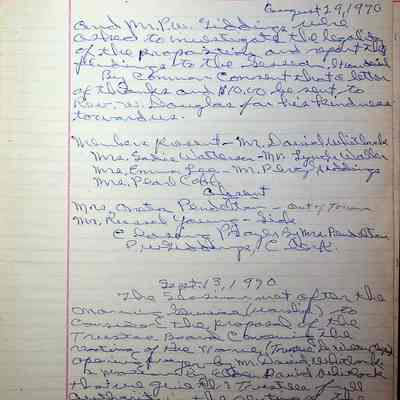 August 29, 1970
and Mr. P.W. Giddings were
asked to investigate the legality
of the proposition and report the
findings to the Session.
By Common Consent that a letter
of thanks and $10.00 be sent to
Rev. W. Douglas for his kindness
toward us.
Members Present - Mr. David Whitlock
Mrs. Sadie Watterson - Mr. Waller
Mrs. Emma Lee - Mr. Percy Giddings
Mrs. Pearl
Absent
Mrs. Pendleton - Out of Town
Mr. Russel Young - Sick
Closing Prayer By Mrs. Pendleton
P.W. Giddings, Clerk.
Sept. 13, 1970
The Session met after the
morning Service (worship) to
Consider the proposal of the
Trustee Board Concerning the
renting of the Manse
opening prayer by Mr. David Whitlock
a motion by Elder David Whitlock
that we give the Trustees full